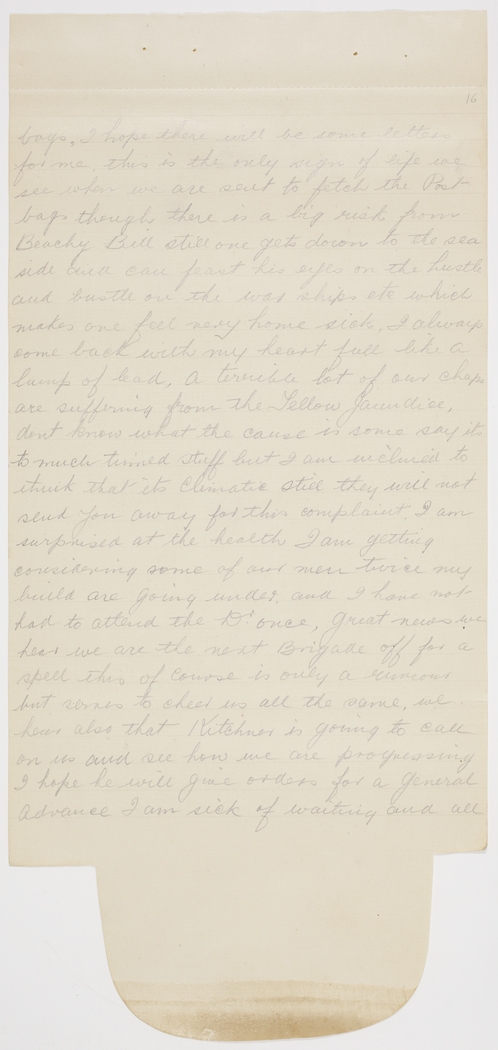 16
bags. I hope there will be some letters
for me, this is the only sign of life we
see when we are sent to fetch the Post
bags though there is a big risk from
Beachy Bill still one gets down to the sea
side and can feast his eyes on the hustle
and bustle on the war ships etc which
makes one feel very home sick, I always
come back with my heart full like a
lump of lead. A terrible lot of our chaps
are suffering from the Yellow Jaundice,
dont know what the cause is some say its
to much tinned stuff but I am inclined to
think that its Climatic still they will not
send you away for this complaint. I am
surprised at the health I am getting
considering some of our men twice my
build are going under, and I have not
had to attend the Dr once, Great news we
hear we are the next Brigade off for a
spell this of course is only a rumour
but serves to cheer us all the same, we
hear also that Kitchner is going to call
on us and see how we are progressing
I hope he will give orders for a General
Advance I am sick of waiting and all